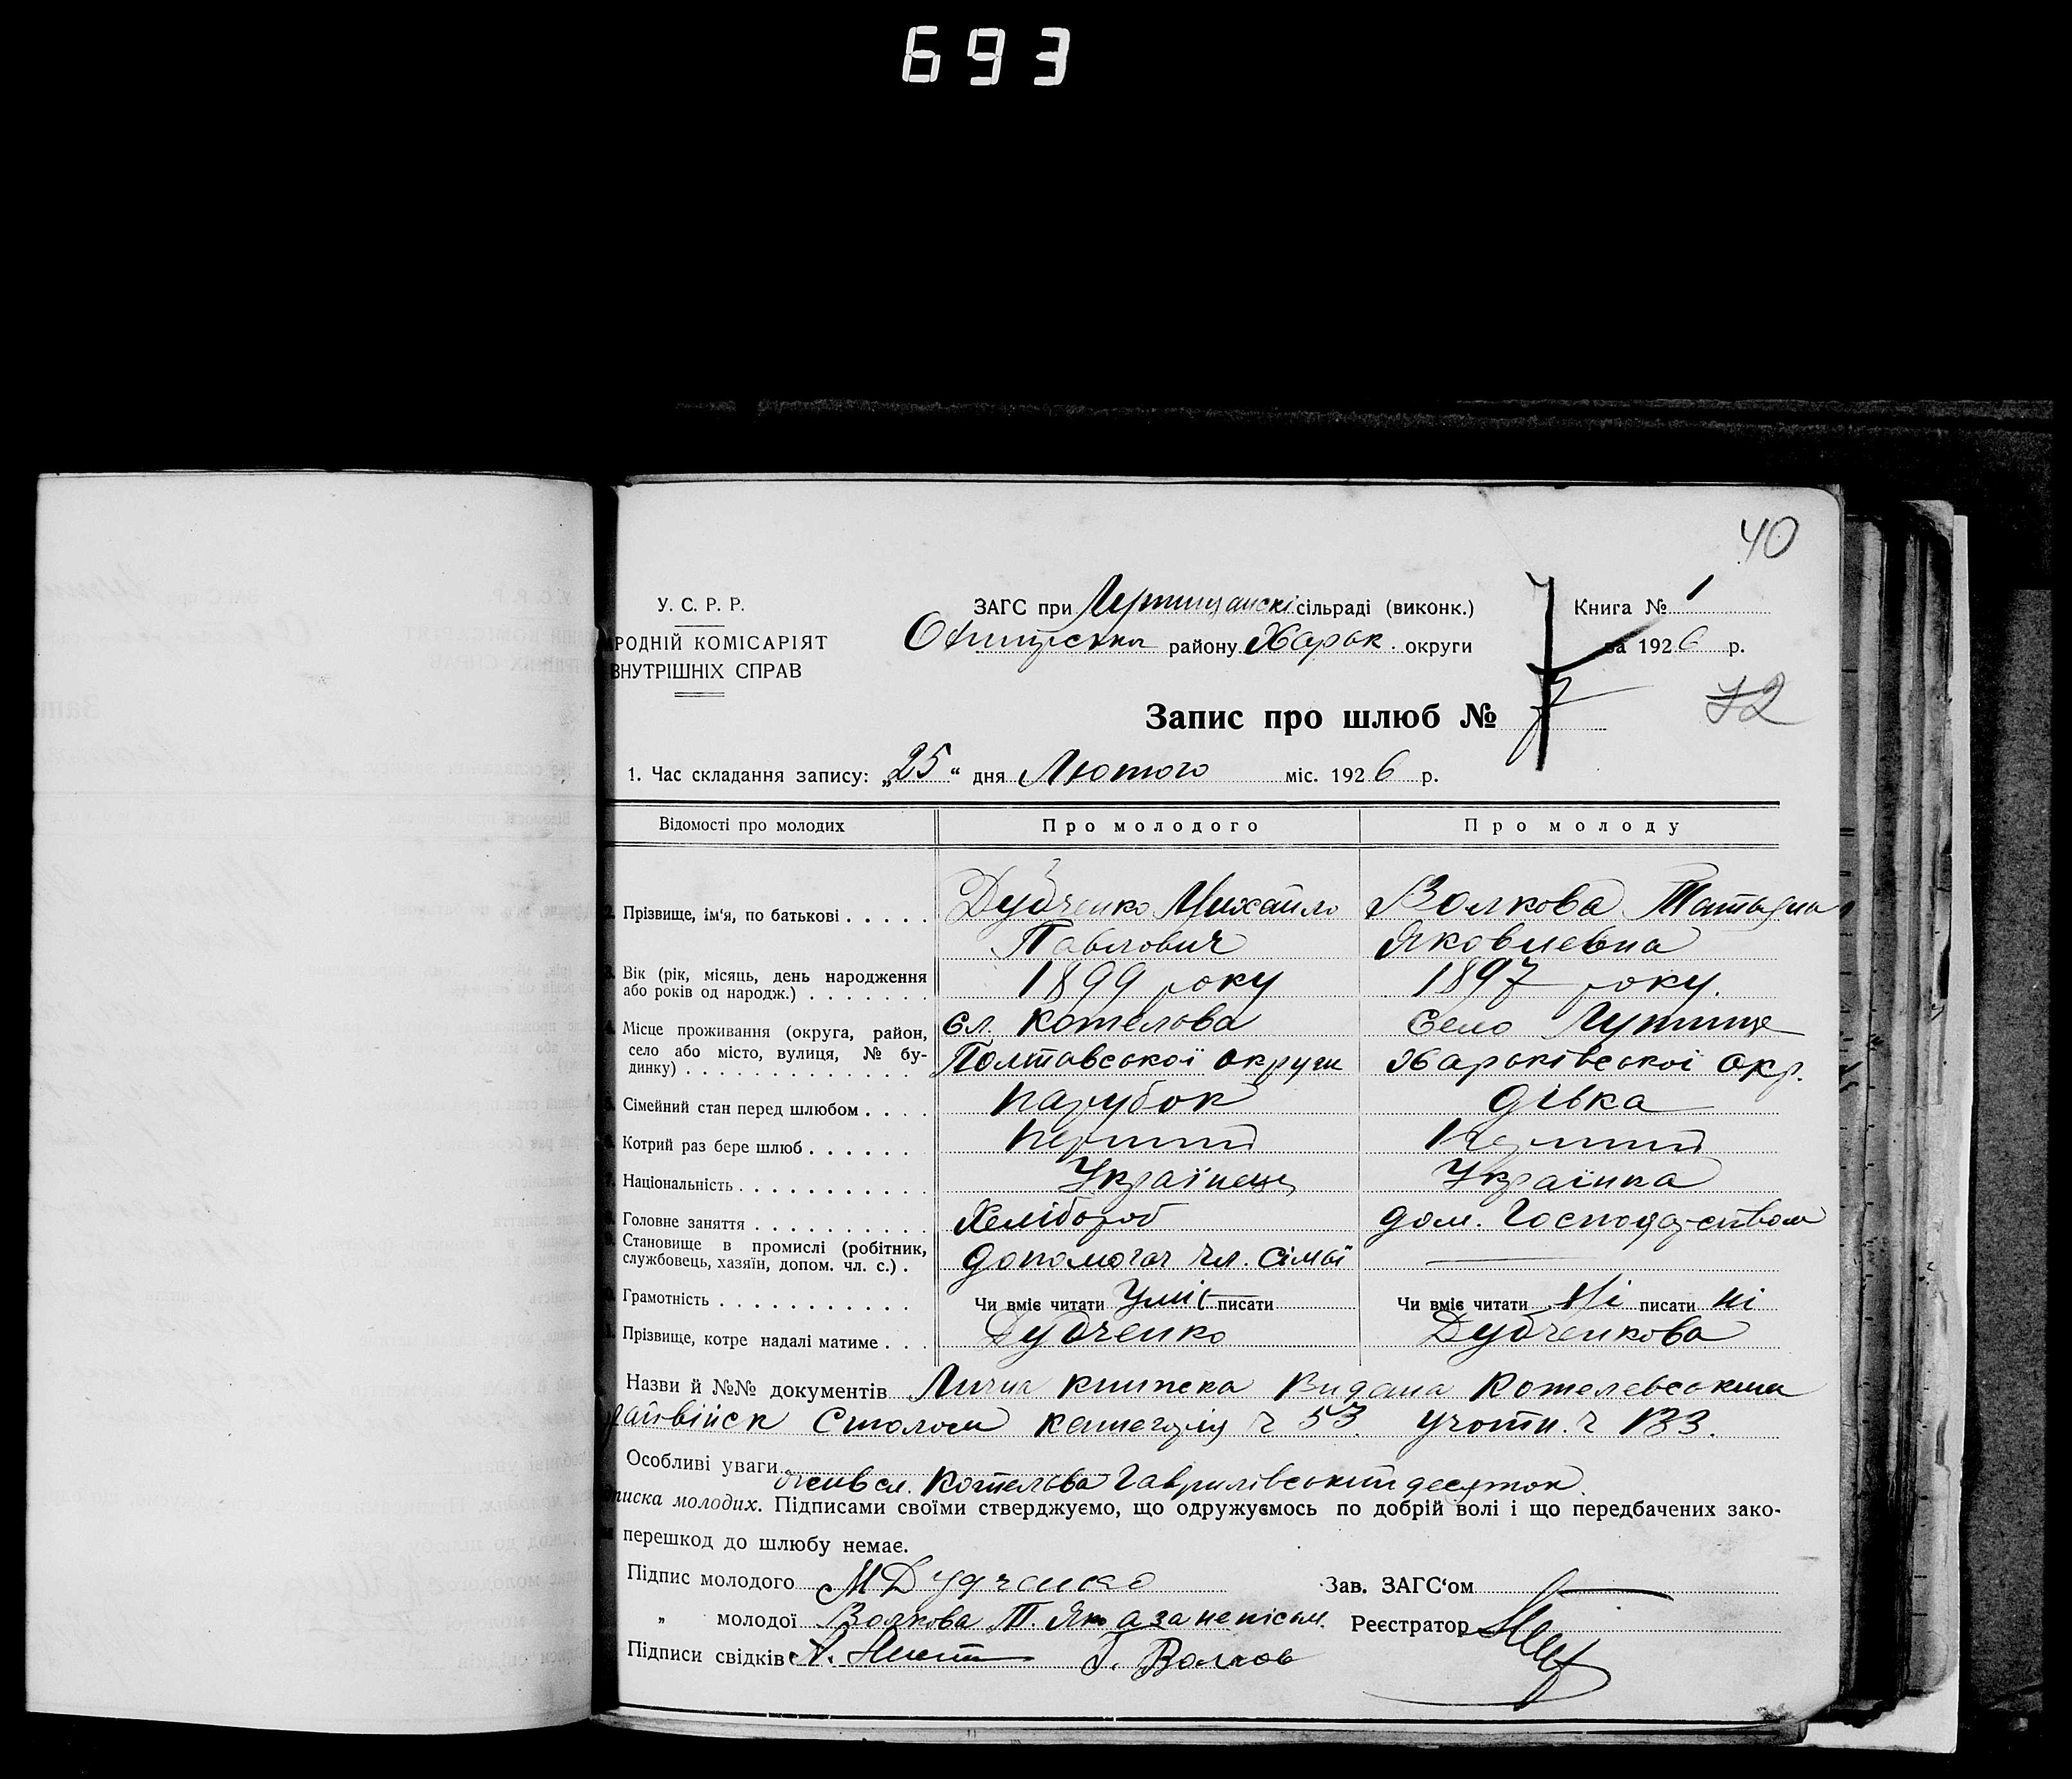 693
40
У. С. Р. Р.
РОДНІЙ КОМІСАРІЯТ
ВНУТРІШНІХ СПРАВ
ЗАГС при сільраді (виконк.)
району Харьк. округи
Книга № 1
за 1926 р.
Запис про шлюб № 7
72
1. Час складання запису: „25“ дня Лютого міс. 1926 р.
Відомості про молодих
Про молодого
Про молоду
2. Прізвище, ім'я, по батькові . . . . . Дудченко Михайло Волкова Татьяна
Павлович Яковлевна
Вік (рік, місяць, день народження
або років од народж.) . . . . . . . 1899 року 1897 року.
Місце проживання (округа, район,
село або місто, вулиця, № бу-
динку) . . . . . . . . . . . . .
сл. Котелова
Полтавської округи
село
Харьківської окр.
Сімейний стан перед шлюбом . . . . парубок дівка
Котрий раз бере шлюб . . . . . . перший перший
Національність . . . . . . . . . . . Українець Українка
Головне заняття . . . . . . . . . . Хлебороб дом. Господарством
Становище в промислі (робітник,
службовець, хазяїн, допом. чл. с.) . допомогач чл. сімьї —
Грамотність . . . . . . . . . . . Чи вміє читати Уміє писати Чи вміє читати Ні писати ні
Прізвище, котре надалі матиме . . . Дудченко Дудченкова
Назви й №№ документів Лична книжка Видана Котелевським
райвійск Столом категорія ч 53. учотн. ч 133.
Особливі уваги сл. Котелова Гаврилівський десяток.
писка молодих. Підписами своїми стверджуємо, що одружуємось по добрій волі і що передбачених зако-
перешкод до шлюбу немає.
Підпис молодого М Дудченко
Зав. ЗАГС‘ом
„ молодої Волкова Т. Як а за непісьм.
Реєстратор
Підписи свідків Г. Волков